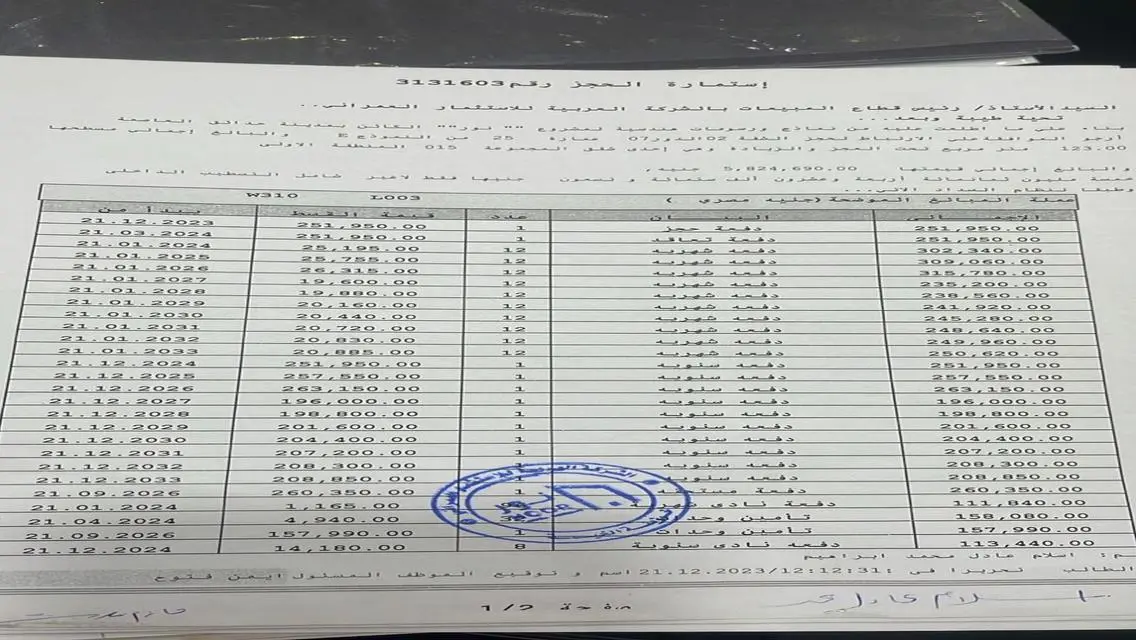 إستمارة الحجز رقم 3131603
السيد الأستاذ/ رئيس قطاع المبيعات بالشركة العربية للاستثمار العمراني..
تحية طيبة وبعد...
بناء على ما اطلعت عليه من نماذج ورسومات هندسية لمشروع "" نور"" الكائن بمدينة حدائق العاصمة
أرجو الموافقة على الارتباط بحجز الشقة 02 الدور 07 عمارة 25 من النموذج E والبالغ إجمالي مسطحها
123.00 متر مربع تحت العجز والزيادة وهي إحدى شقق المجموعة 015 المنطقة الاولى
والبالغ إجمالي قيمتها 5,824,690.00 جنيه,
خمسة مليون ثمانمائة أربعة وعشرون ألف ستمائة و تسعون جنيها فقط لاغير شامل التشطيب الداخلى
وطبقا لنظام السداد الآتي...
جملة المبالغ الموضحة (جنيه مصري ) L003 W310
الإجمالى البيـــان عدد قيمة القسط يبدأ من
251,950.00 دفعة حجز 1 251,950.00 21.12.2023
251,950.00 دفعة تعاقد 1 251,950.00 21.03.2024
302,340.00 دفعه شهريه 12 25,195.00 21.01.2024
309,060.00 دفعه شهريه 12 25,755.00 21.01.2025
315,780.00 دفعه شهريه 12 26,315.00 21.01.2026
235,200.00 دفعه شهريه 12 19,600.00 21.01.2027
238,560.00 دفعه شهريه 12 19,880.00 21.01.2028
241,920.00 دفعه شهريه 12 20,160.00 21.01.2029
245,280.00 دفعه شهريه 12 20,440.00 21.01.2030
248,640.00 دفعه شهريه 12 20,720.00 21.01.2031
249,960.00 دفعه شهريه 12 20,830.00 21.01.2032
250,620.00 دفعه شهريه 12 20,885.00 21.01.2033
251,950.00 دفعه سنويه 1 251,950.00 21.12.2024
257,550.00 دفعه سنويه 1 257,550.00 21.12.2025
263,150.00 دفعه سنويه 1 263,150.00 21.12.2026
196,000.00 دفعه سنويه 1 196,000.00 21.12.2027
198,800.00 دفعه سنويه 1 198,800.00 21.12.2028
201,600.00 دفعه سنويه 1 201,600.00 21.12.2029
204,400.00 دفعه سنويه 1 204,400.00 21.12.2030
207,200.00 دفعه سنويه 1 207,200.00 21.12.2031
208,300.00 دفعه سنويه 1 208,300.00 21.12.2032
208,850.00 دفعه سنويه 1 208,850.00 21.12.2033
260,350.00 دفعة 1 260,350.00 21.09.2026
111,840.00 دفعة نادى 1,165.00 21.01.2024
158,080.00 تأمين وحدات 4,940.00 21.04.2024
157,990.00 تأمين وحدات 1 157,990.00 21.09.2026
113,440.00 دفعه نادى سنوية 8 14,180.00 21.12.2024
اسلام عادل محمد ابراهيم
الطالب تحريرا فى :21.12.2023/12:12:31 اسم و توقيع الموظف المسئول ايمن فتوح
اسلام عادل محمد
صفحة 1/2